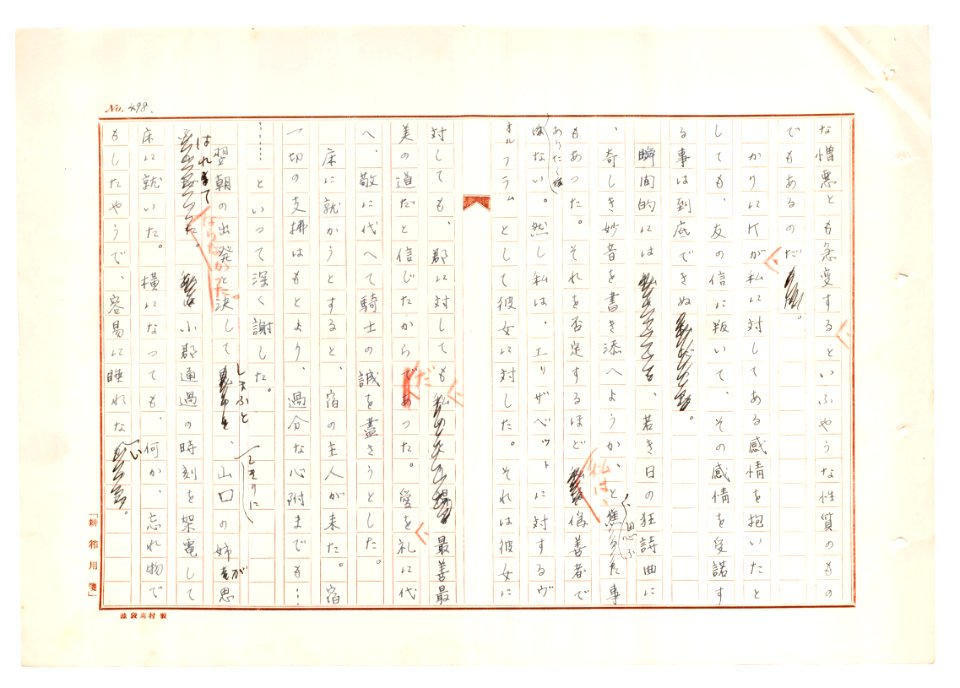 No. 498.
な憎悪とも急変するといふやうな性質のもの
でもあるのだ。
かりにKが私に対してある感情を抱いたと
しても、友の信に叛いて、その感情を受諾す
る事は到底できぬ。
瞬間的には、若き日の狂詩曲に
、奇しき妙音を書き添へようか、と思ふ事
もあつた。それを否定するほど私は、偽善者で
ありたくない。然し私は、エリザベットに対するヴ
オルフラムとして彼女に対した。それは彼女に
対しても、郡に対しても最善最
美の道だと信じたからだつた。愛を礼に代
へ、敬に代へて騎士の誠を盡さうとした。
床に就かうとすると、宿の主人が来た。宿
一切の支拂はもとより、過分な心附までも…
……といつて深く謝した。
翌朝の出発と決してしまふと、山口の姉がしきりに思
はれて ならなかつた。小郡通過の時刻を架電して
床に就いた。横になつても、何か、忘れ物で
もしたやうで、容易に睡れない。
「新箱用箋」